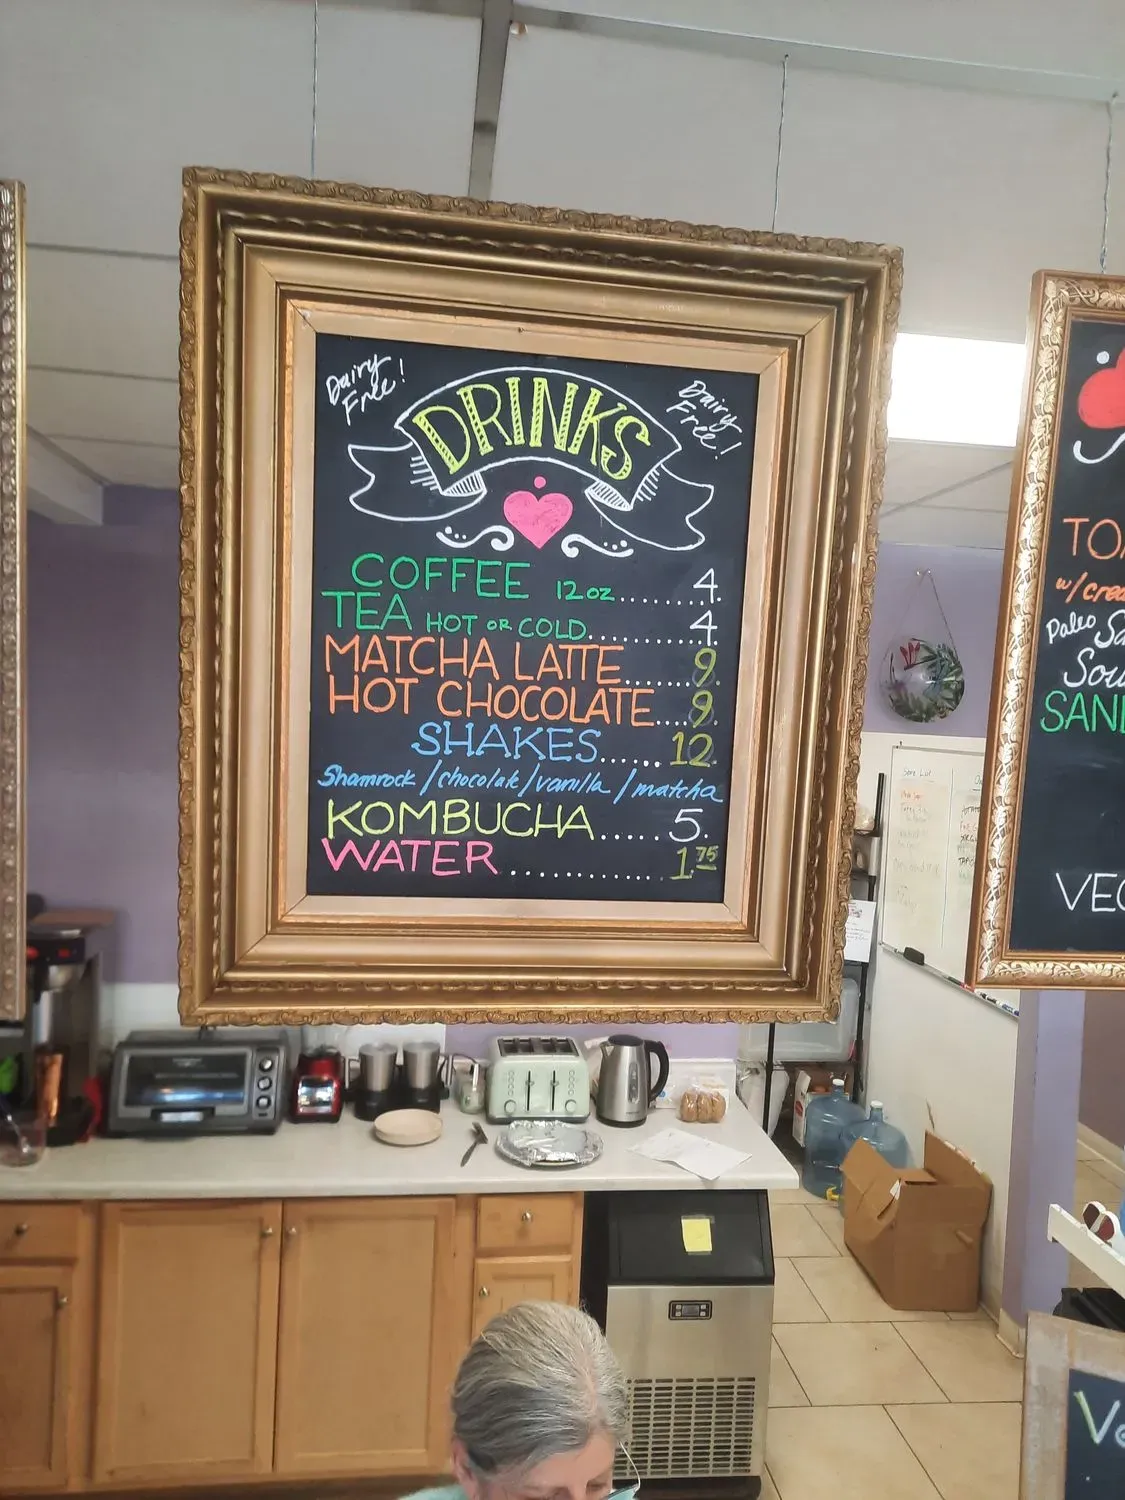 Dairy Free!
DRINKS
Dairy Free!
COFFEE 12oz........4.
TEA HOT OR COLD.........4.
MATCHA LATTE.......9.
HOT CHOCOLATE....9.
SHAKES......12.
Shamrock / chocolate / vanilla / matcha
KOMBUCHA......5.
WATER.............1.75
TO
w/ crea
Paleo Sa
Sou
SAN
VEG
Ve